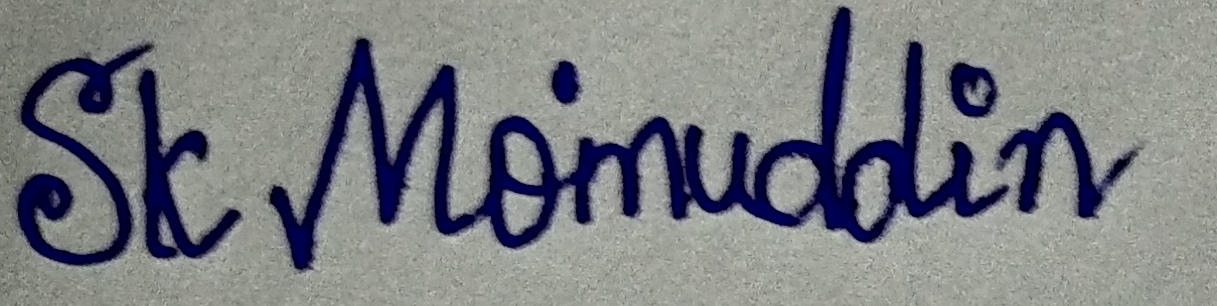 Sk Moinuddin